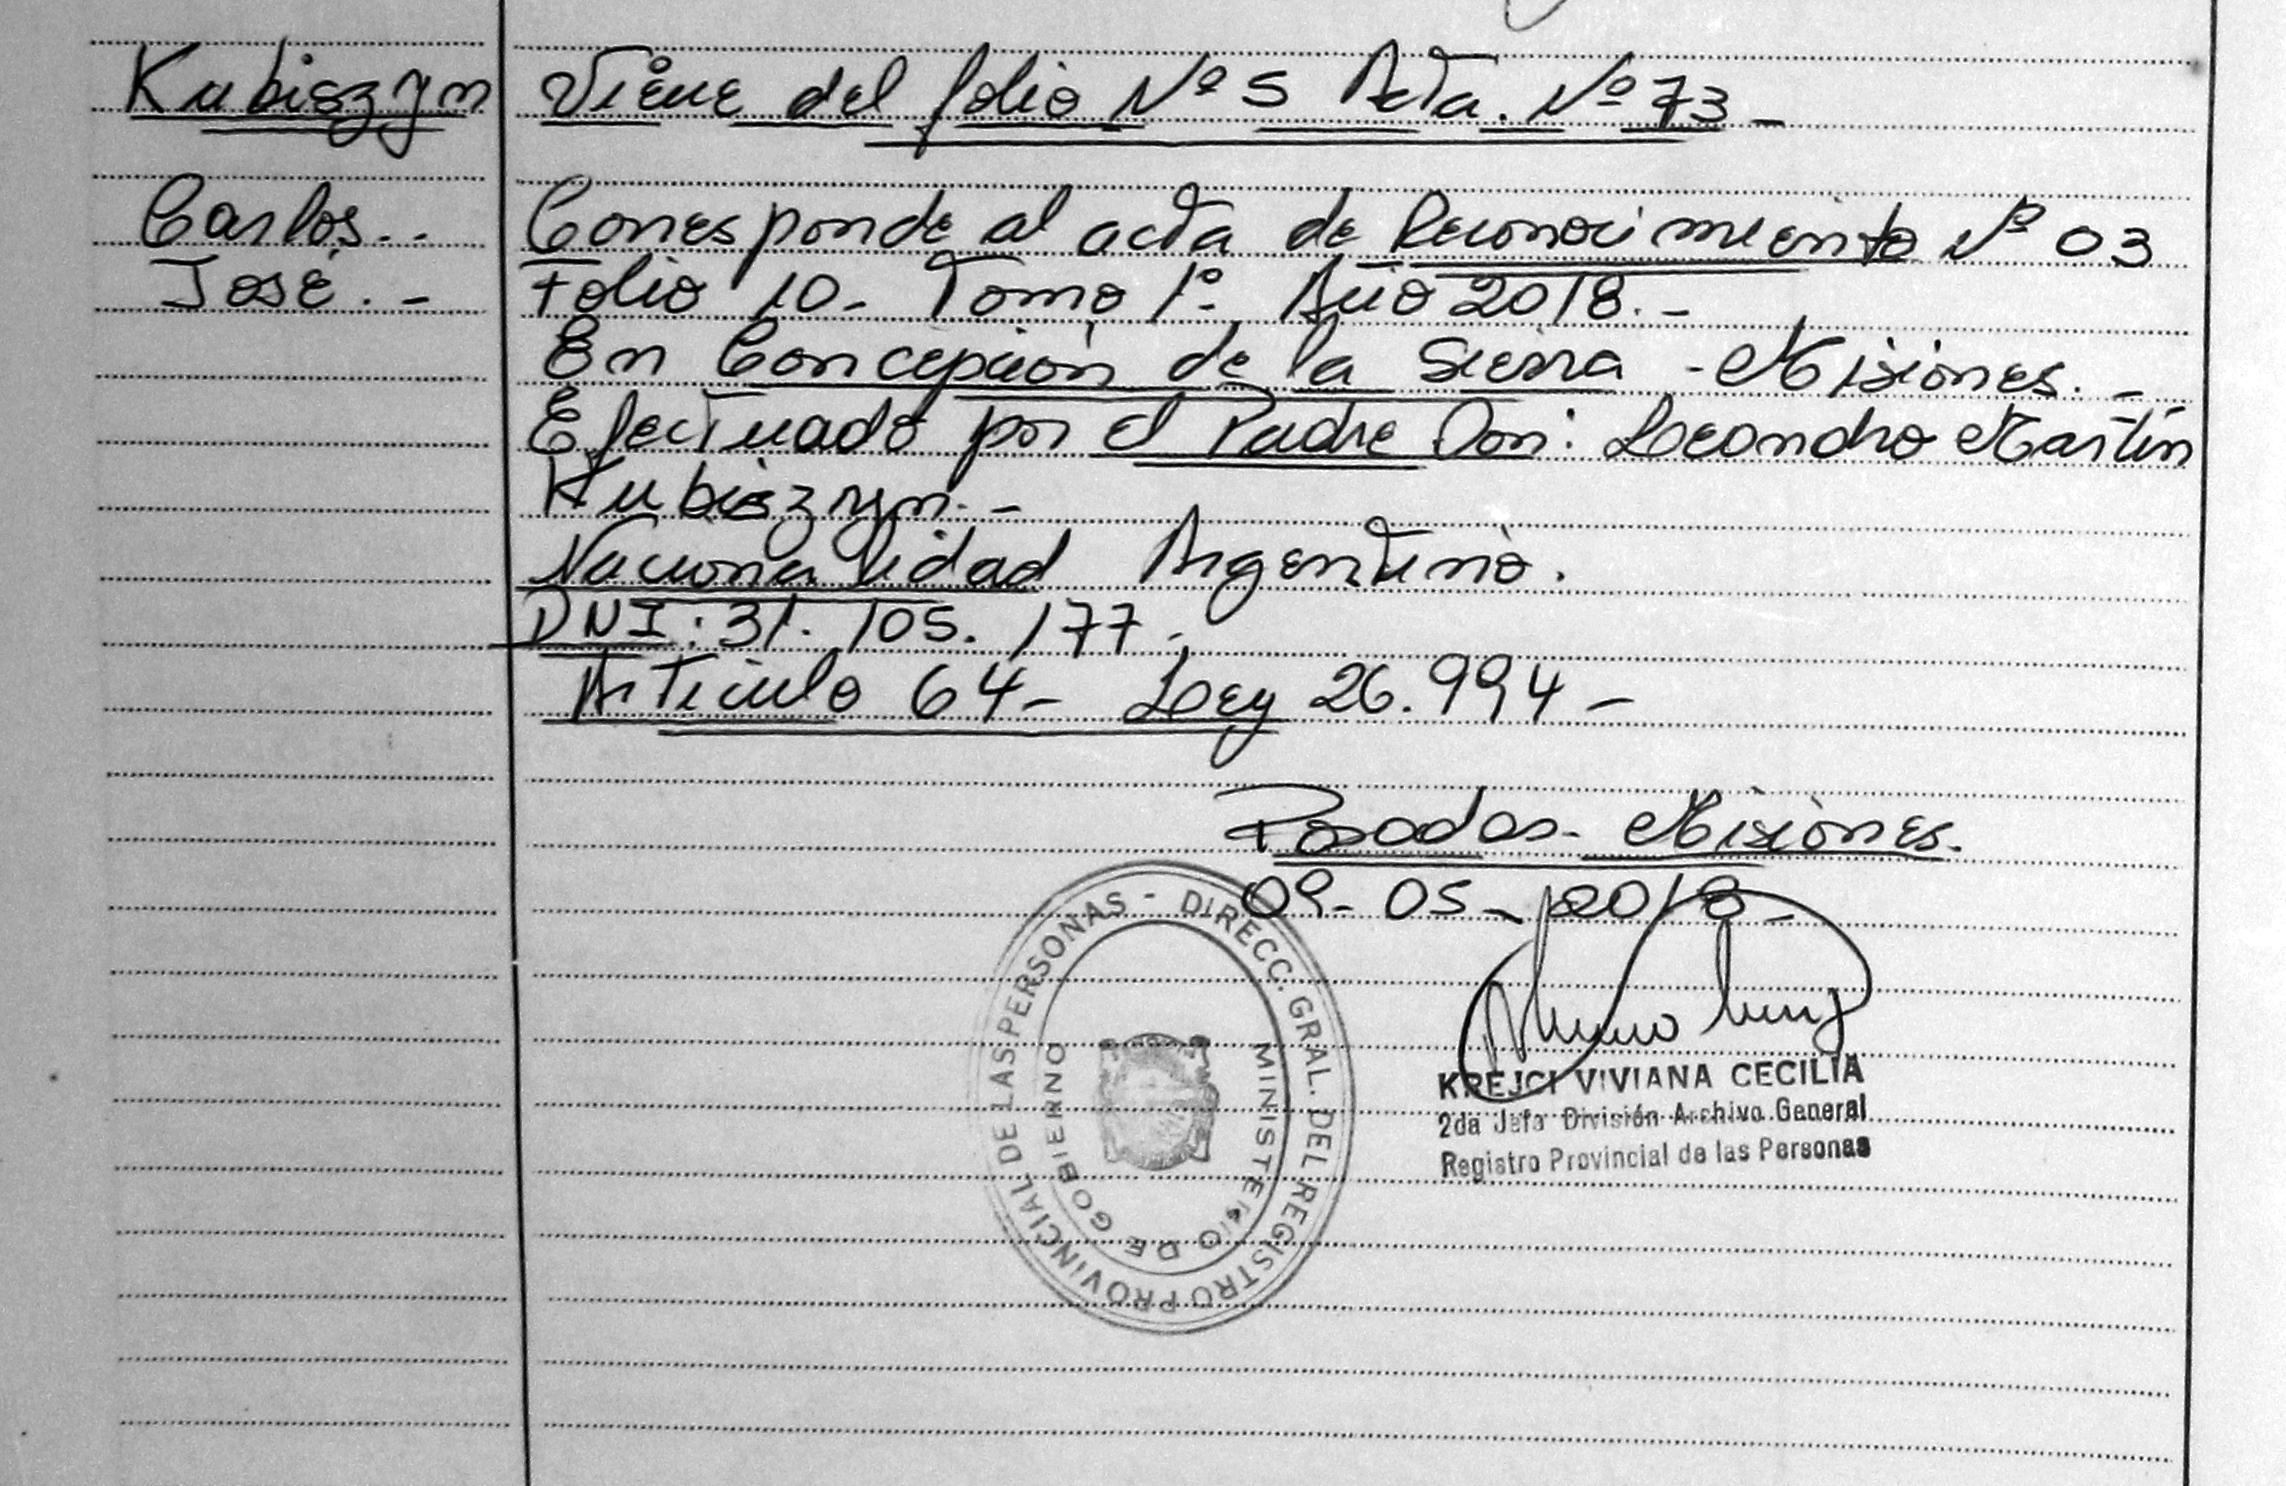 Kubiszyn
Carlos..
José.-
Viene del folio Nº 5 Acta. Nº 73-
Corresponde al acta de Reconocimiento Nº 03
Folio 10- Tomo 1º Año 2018.-
En Concepción de la Sierra - Misiones.-
Efectuado por el Padre Don: Leandro Martín
Kubiszyn.-
Nacionalidad Argentino.
DNI: 31.105.177.
Artículo 64- Ley 26.994-
Posadas- Misiones.
09-05-2018-
DIRECC. GRAL. DEL REGISTRO PROVINCIAL DE LAS PERSONAS -
MINISTERIO DE GOBIERNO
KREJCI VIVIANA CECILIA
2da Jefa División Archivo General
Registro Provincial de las Personas